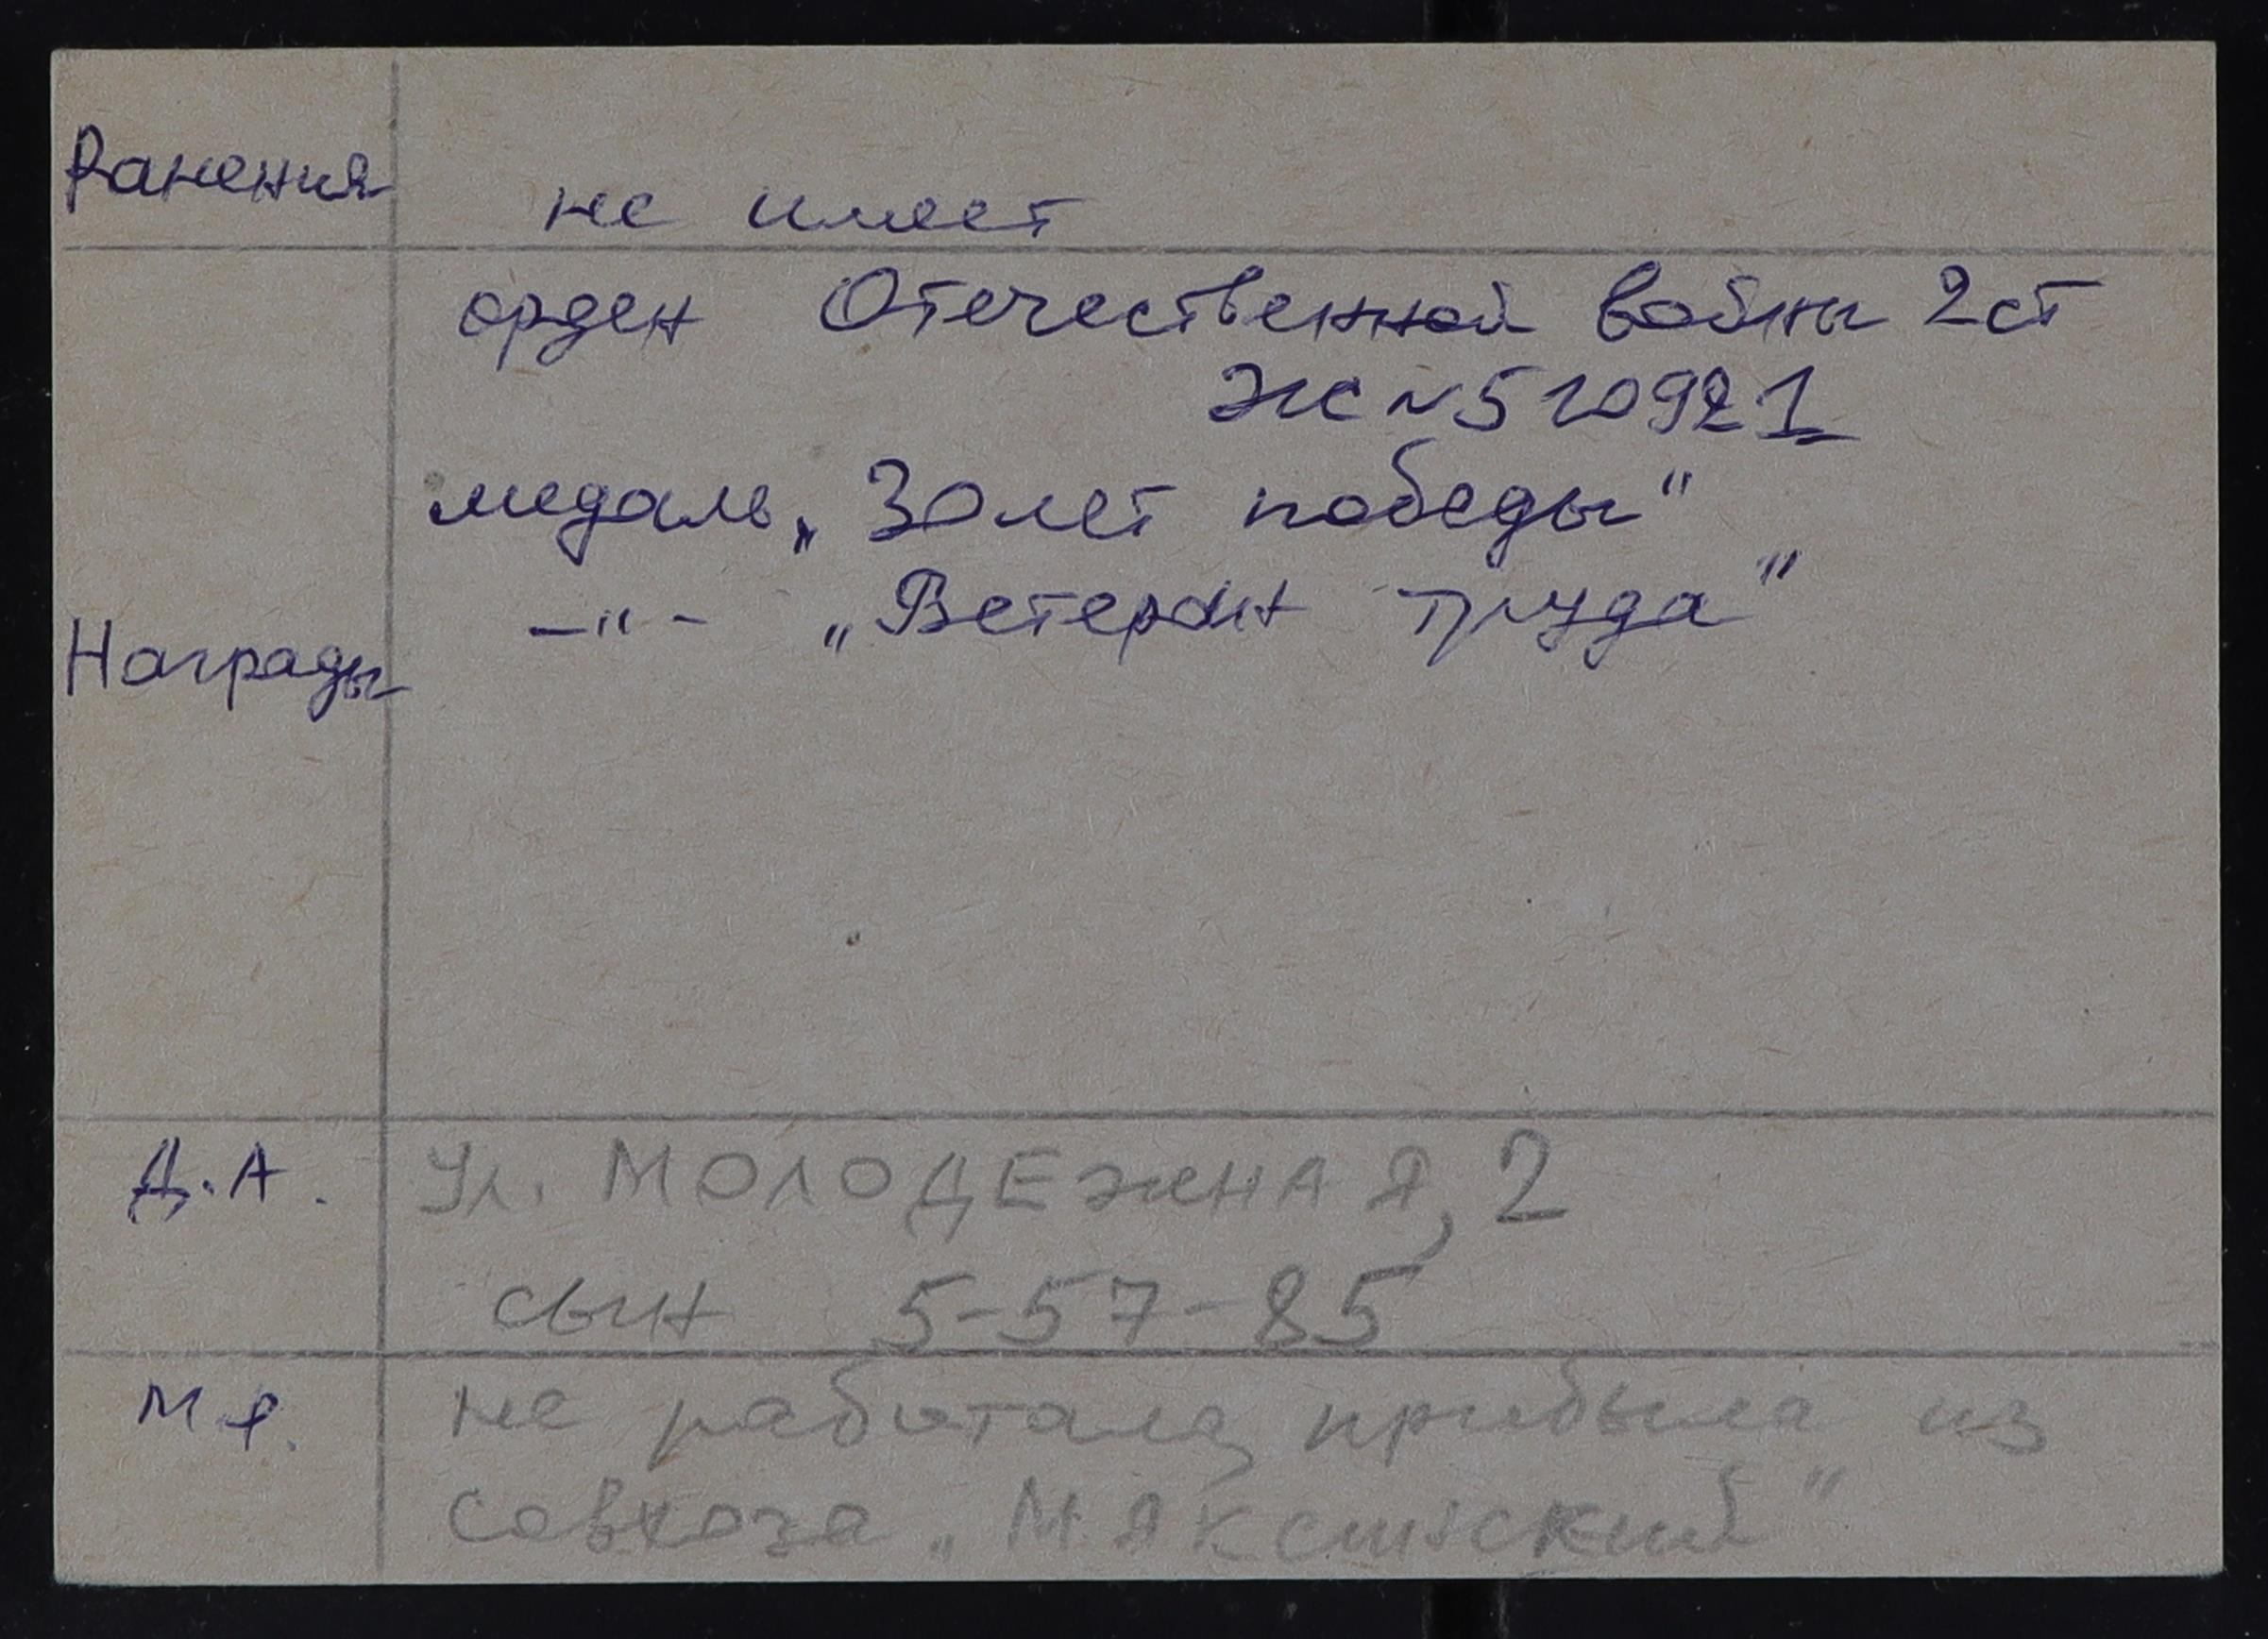 Ранения не имеет
орден Отечественной войны 2ст
ЖС №510921
медаль „30 лет победы“
–"– „Ветеран труда"
Награды
Д.А. Ул. МОЛОДЕЖНАЯ, 2
сын 5-57-85
М р. не работала, прибыла из
совхоза „Мяксинский"